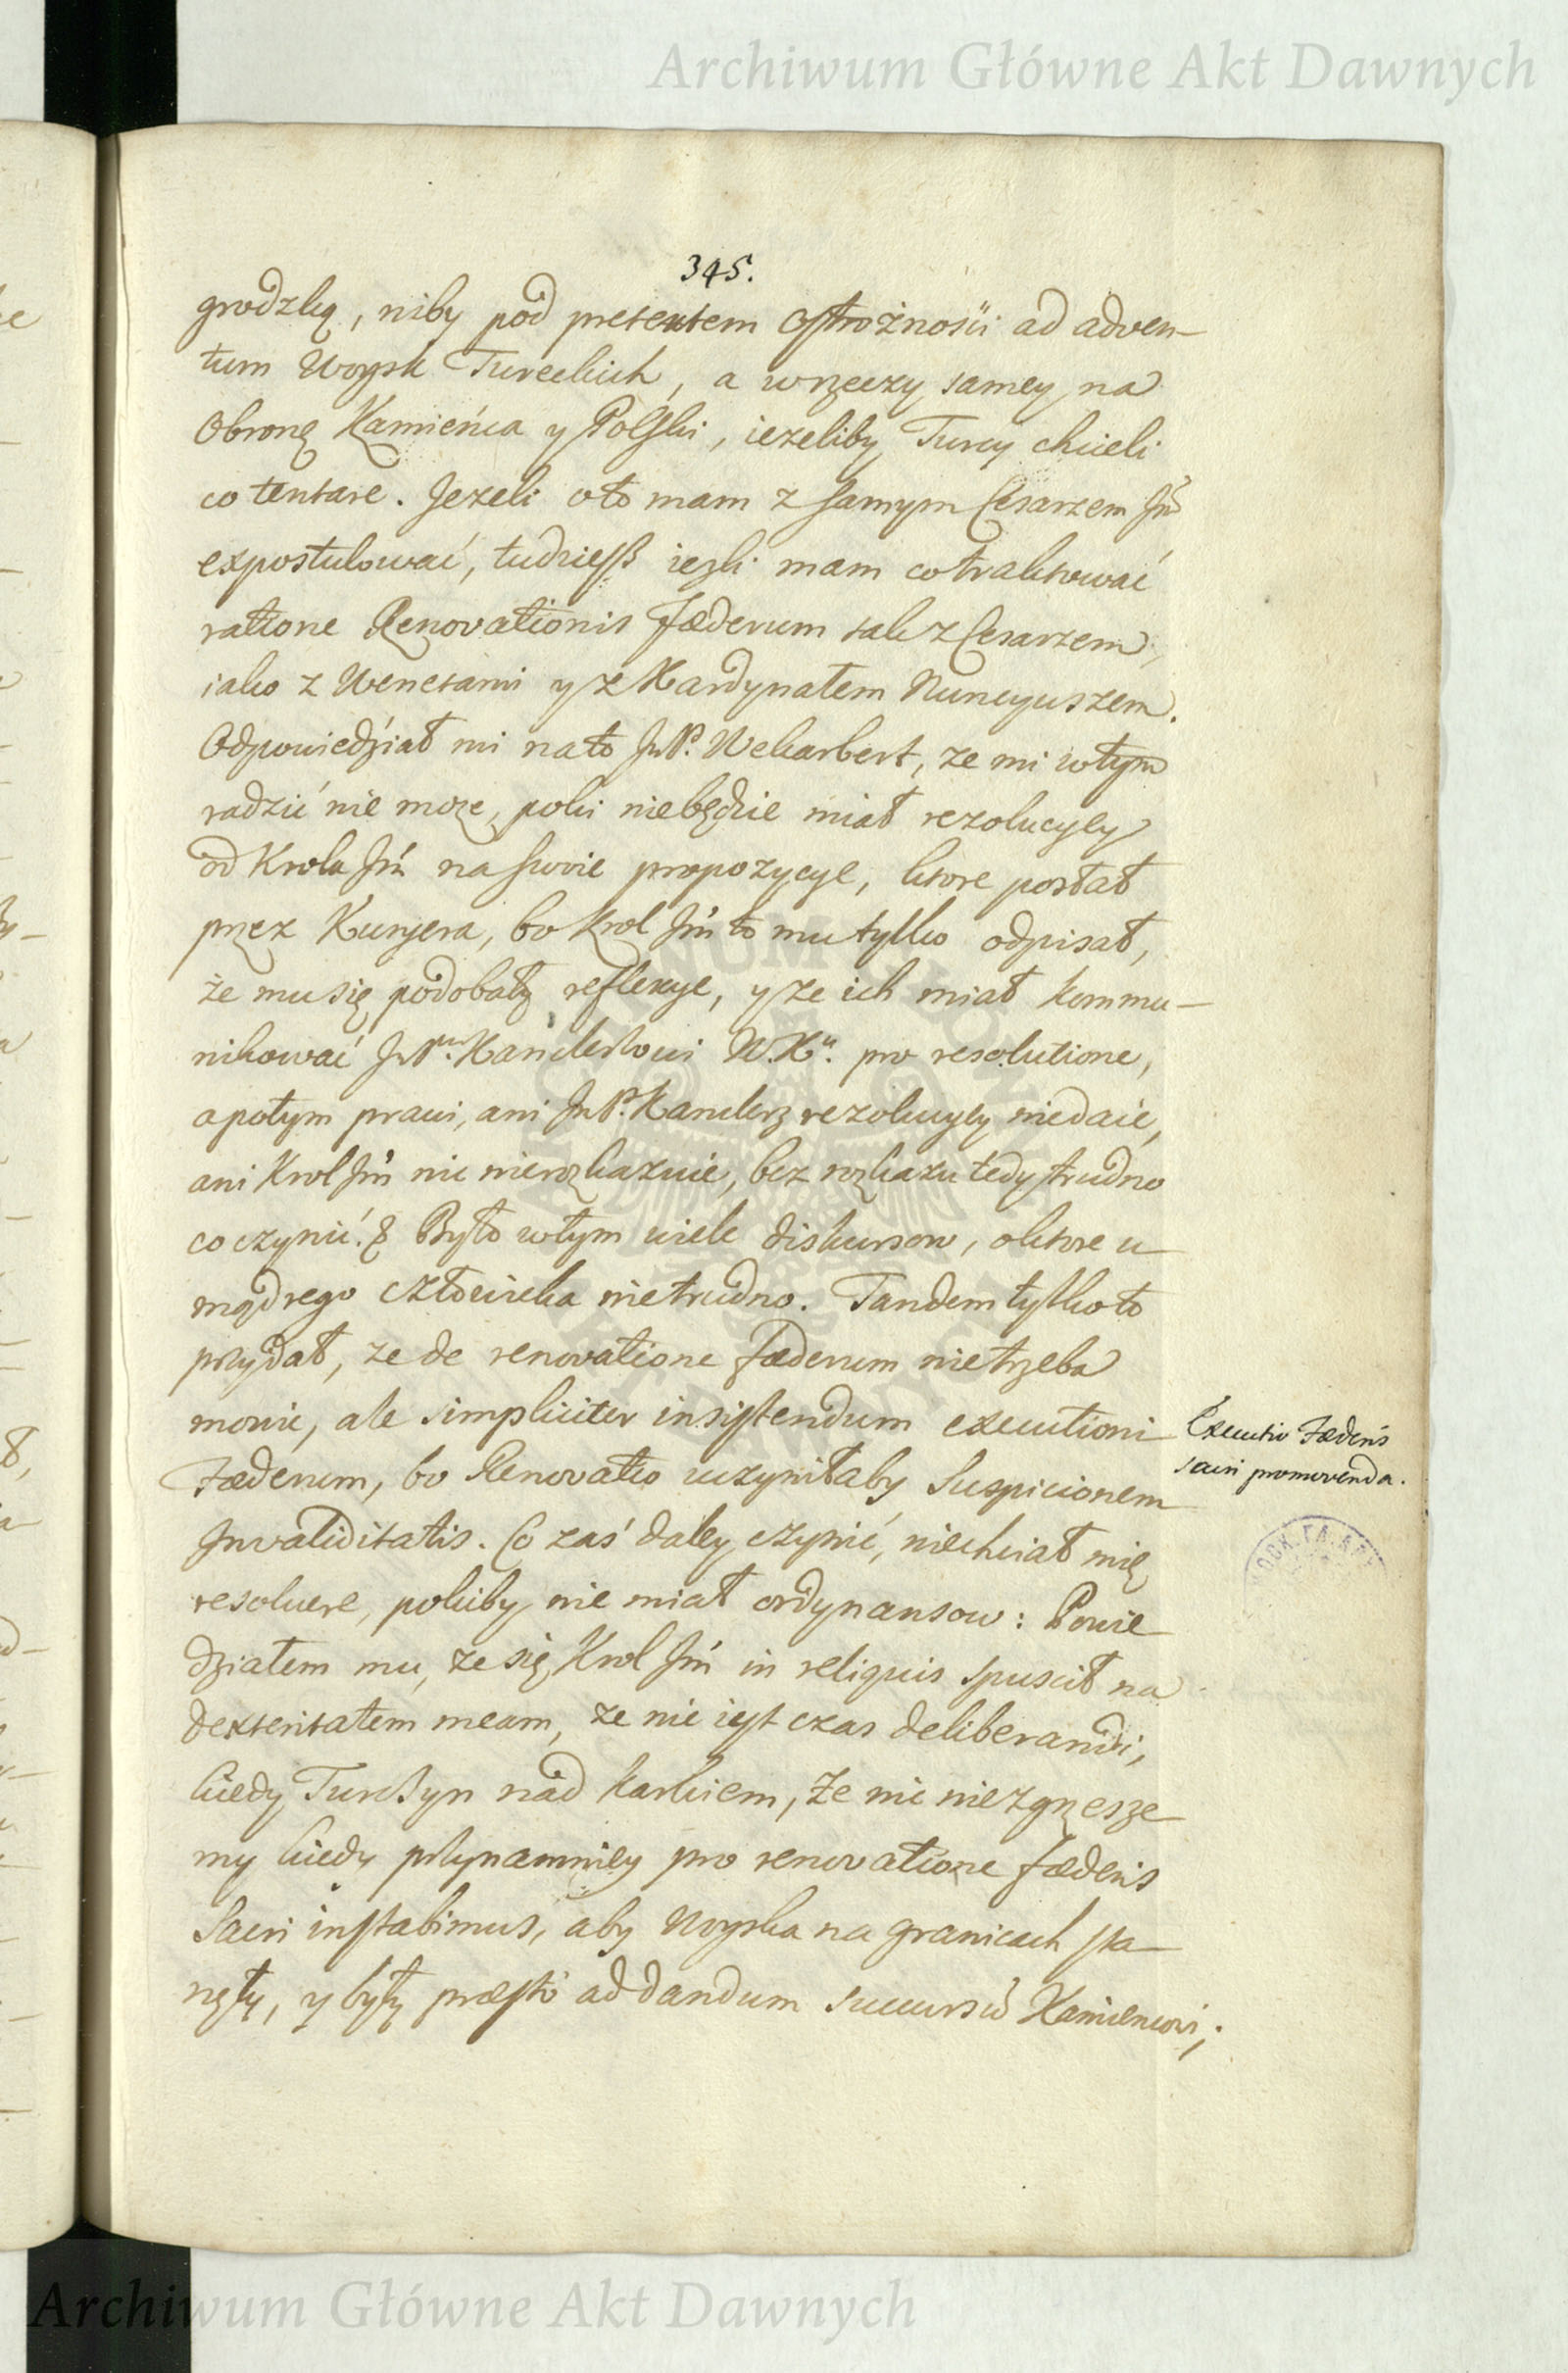 Archiwum Główne Akt Dawnych
345.
grodzką, niby pod pretextem Ostrożności ad adven-
tum Woysk Tureckich, a wrzeczy samey na
Obronę Kamieńca y Polski, iezeliby Turcy chcieli
co tentare. Jezeli oto mam z samym Cesarzem Jm̃
expostulować, tudziesz iezli mam co traktować
ratione Renovationis Fæderum tak z Cesarzem,
iako z Wenetami y z Kardynałem Nuncyuszem.
Odpowiedział mi nato JmP. Wekarbert, ze mi wtym
radzić nie moze, poki niebędzie miał rezolucyey
od Krola Jm̃ na swoie propozycye, ktore posłał
przez Kuryera, bo Krol Jm̃ to mu tylko odpisał,
że musię podobały reflexye, y ze ich miał kommu-
nikować JmP. Kanclerzowi W.K. pro resolutione,
apotym prawi, ani JmP. Kanclerz rezolucyey niedaie,
ani Krol Jm̃ nic nierozkazuie, bez rozkazu tedy trudno
co czynić. Było wtym wiele diskursow, oktore u
mądrego człowieka nietrudno. Tandem tylko to
przydał, ze de renovatione fæderum nietrzeba
mowic, ale simpliciter insistendum executioni
Fæderum, bo Renovatio uczyniłaby Suspicionem
Invaliditatis. Co zaś daley czynić, niechciał mię
resolvere, pokiby nie miał ordynansow: Powie
działem mu, ze się Krol Jm̃ in reliquis spuscił na
dexteritatem meam, ze nie iest czas deliberandi,
kiedy Turczyn nad karkiem, że nic niezgrzesze
my kiedy przynamniey pro renovatione fæderis
Sacri instabimus, aby Woyska na granicach sta-
nęły, y były præsto ad dandum succursũ Kamiencowi;
Executio Fæderis
sacri promovenda.
Archiwum Główne Akt Dawnych